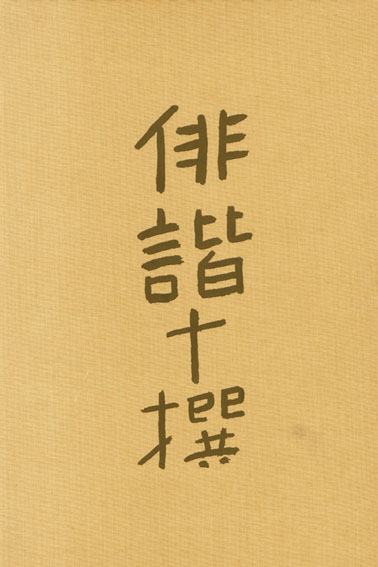 俳諧十撰